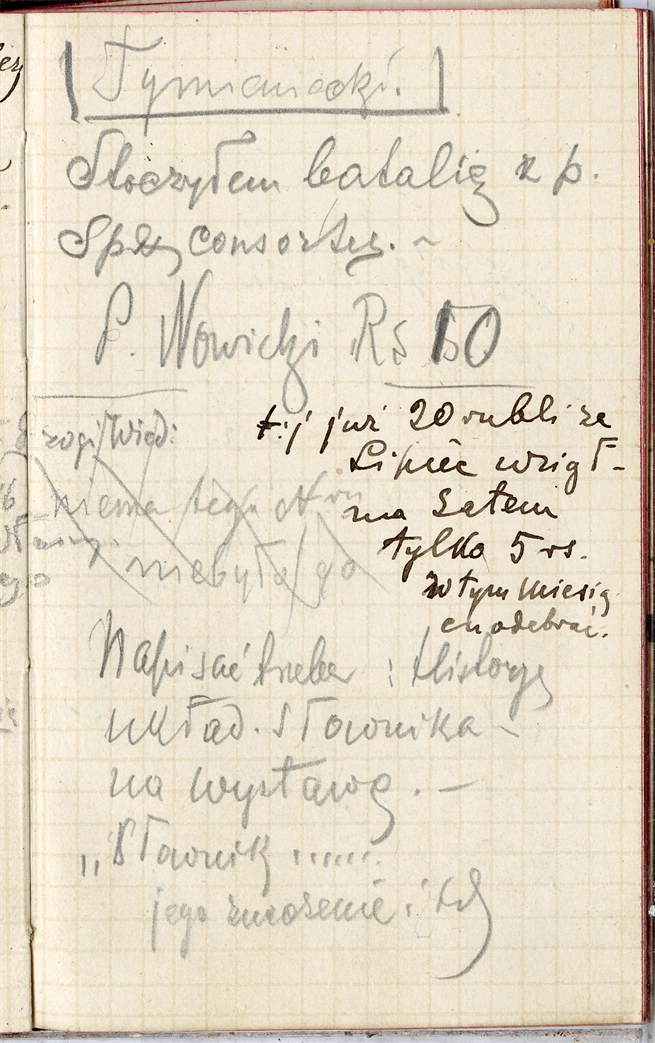 Tymieniecki.
Stoczyłem batalię z p.
consortes. ~
P. Nowicki Rs 50
już 20 rubli za
Lipiec wziął –
ma zatem
tylko 5 rs.
w tym miesią
cu odebrać.
niema tego
niebyło go
Napisać trzeba : Historyę
układ. Słownika –
na wystawę. —
„Słownik ......
jego znaczenie i td